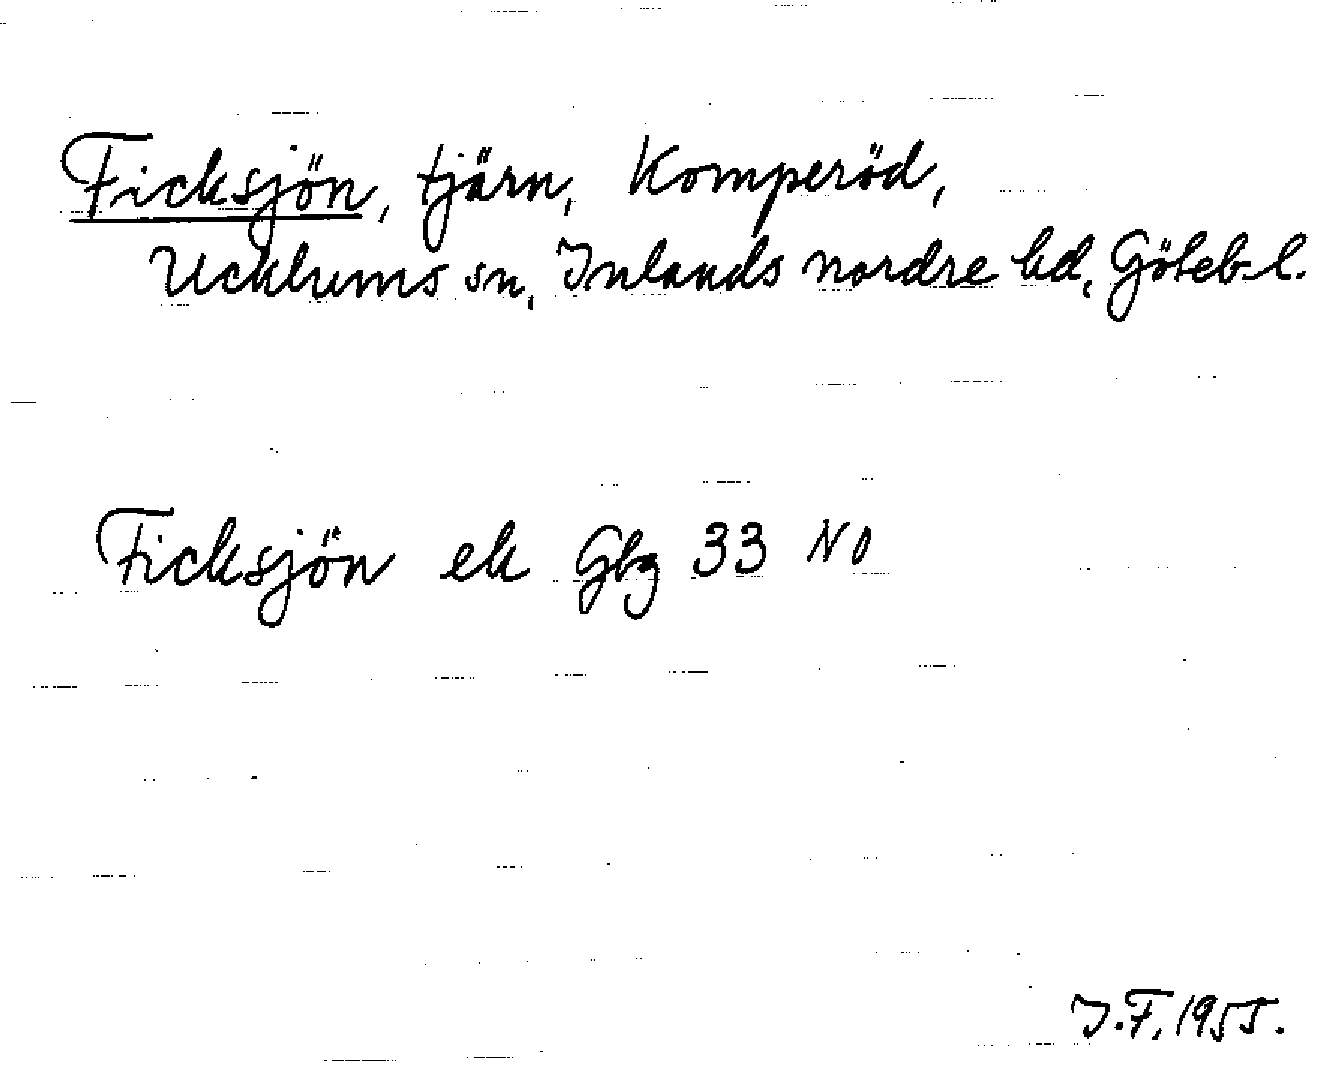 Ficksjön, tjärn, Komperöd,
Ucklums sn, Inlands nordre hd, Göteb-l.
Ficksjön ek Gbg 33 NO
J.F. 1955.